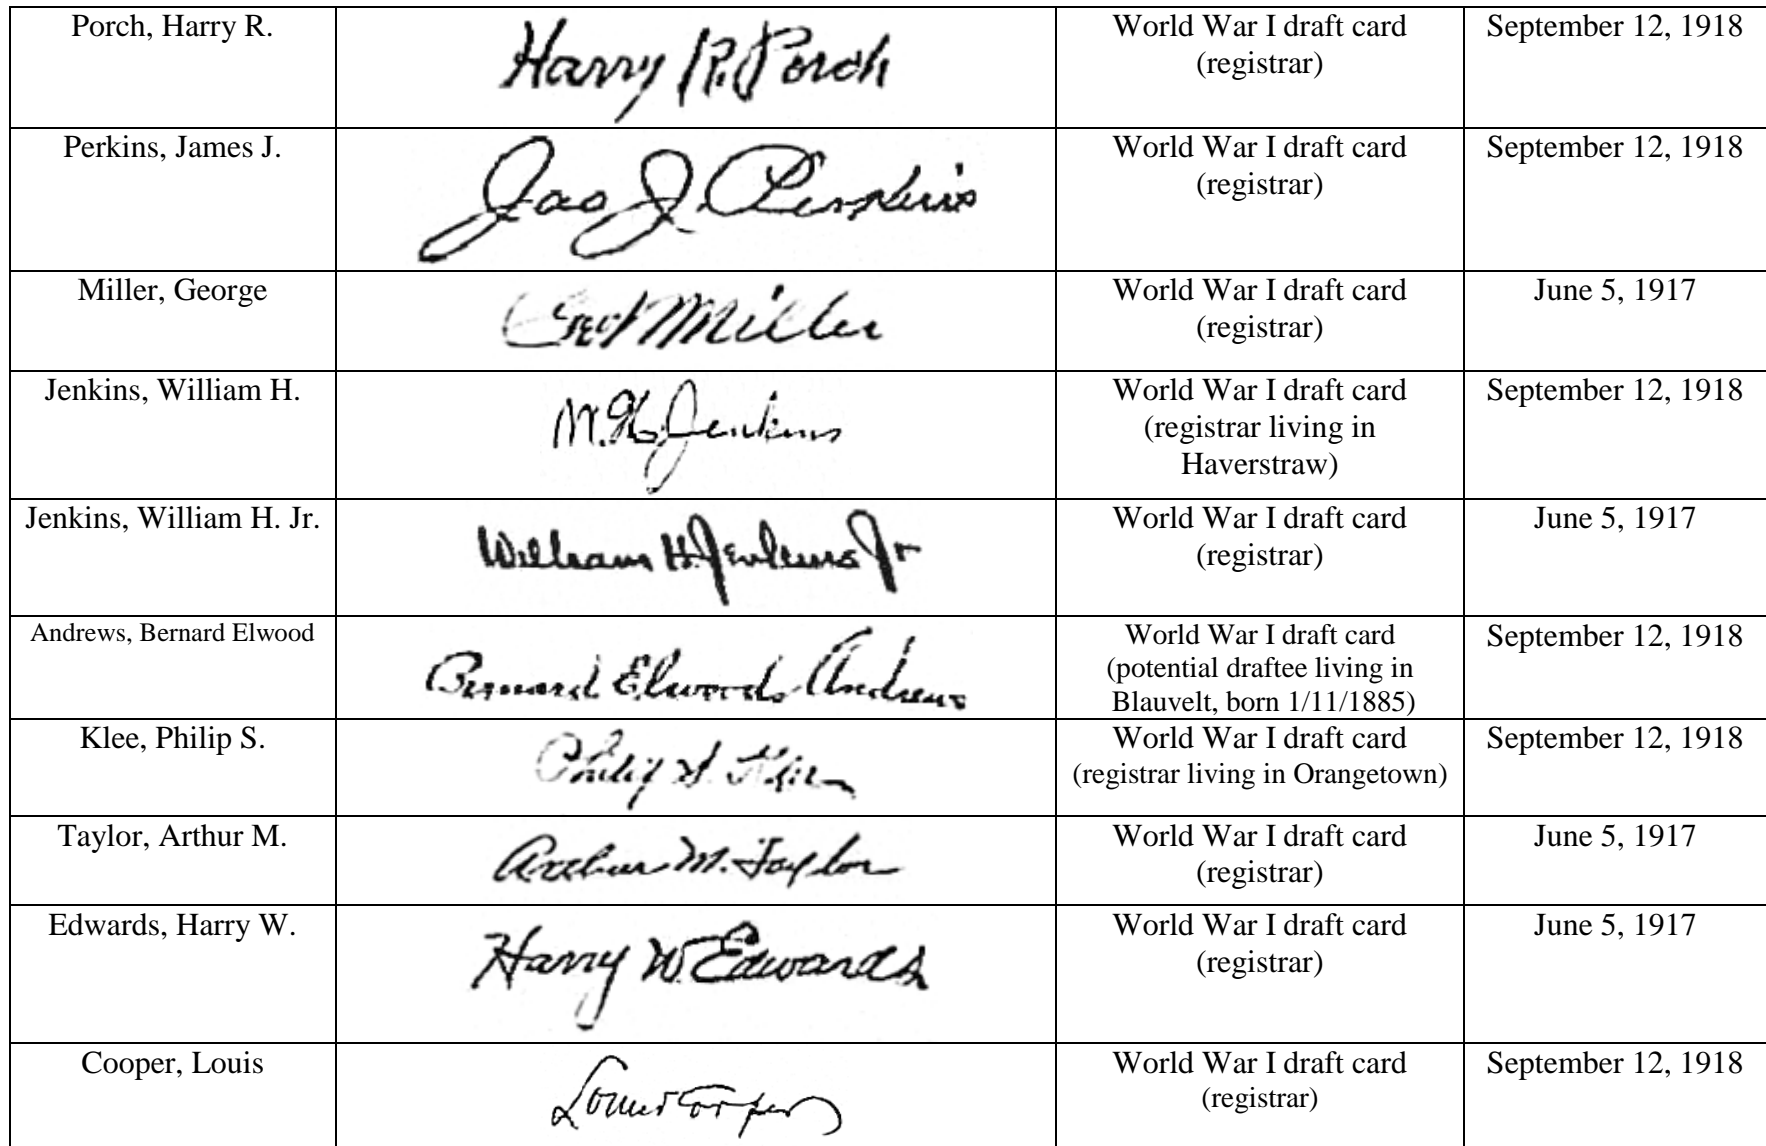 Porch, Harry R.
Harry R. Porch
World War I draft card
(registrar)
September 12, 1918
Perkins, James J.
Jas J. Perkins
World War I draft card
(registrar)
September 12, 1918
Miller, George
Geo Miller
World War I draft card
(registrar)
June 5, 1917
Jenkins, William H.
W. H. Jenkins
World War I draft card
(registrar living in
Haverstraw)
September 12, 1918
Jenkins, William H. Jr.
William H. Jenkins Jr
World War I draft card
(registrar)
June 5, 1917
Andrews, Bernard Elwood
Bernard Elwood Andrews
World War I draft card
(potential draftee living in
Blauvelt, born 1/11/1885)
September 12, 1918
Klee, Philip S.
Philip S. Klee
World War I draft card
(registrar living in Orangetown)
September 12, 1918
Taylor, Arthur M.
Arthur M. Taylor
World War I draft card
(registrar)
June 5, 1917
Edwards, Harry W.
Harry W. Edwards
World War I draft card
(registrar)
June 5, 1917
Cooper, Louis
Louis Cooper
World War I draft card
(registrar)
September 12, 1918